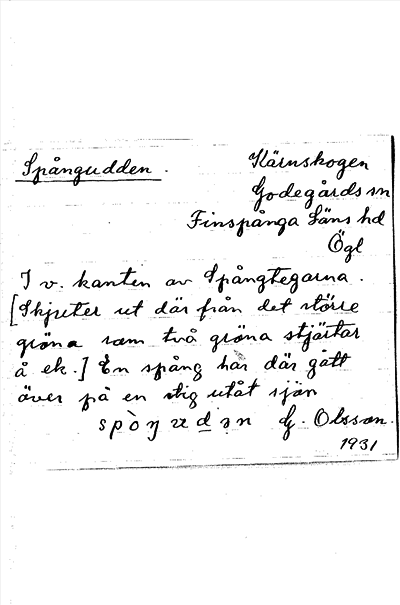 Spångudden.
Kärnskogen
Godegårds sn
Finspånga Läns hd
Ögl
I v. kanten av Spångtegarna.
[Skjuter ut där från det större
gröna som två gröna stjärtar
å ek.] En spång har där gått
över på en stig utåt sjön
spòŋ ʉdən G. Olsson.
1931